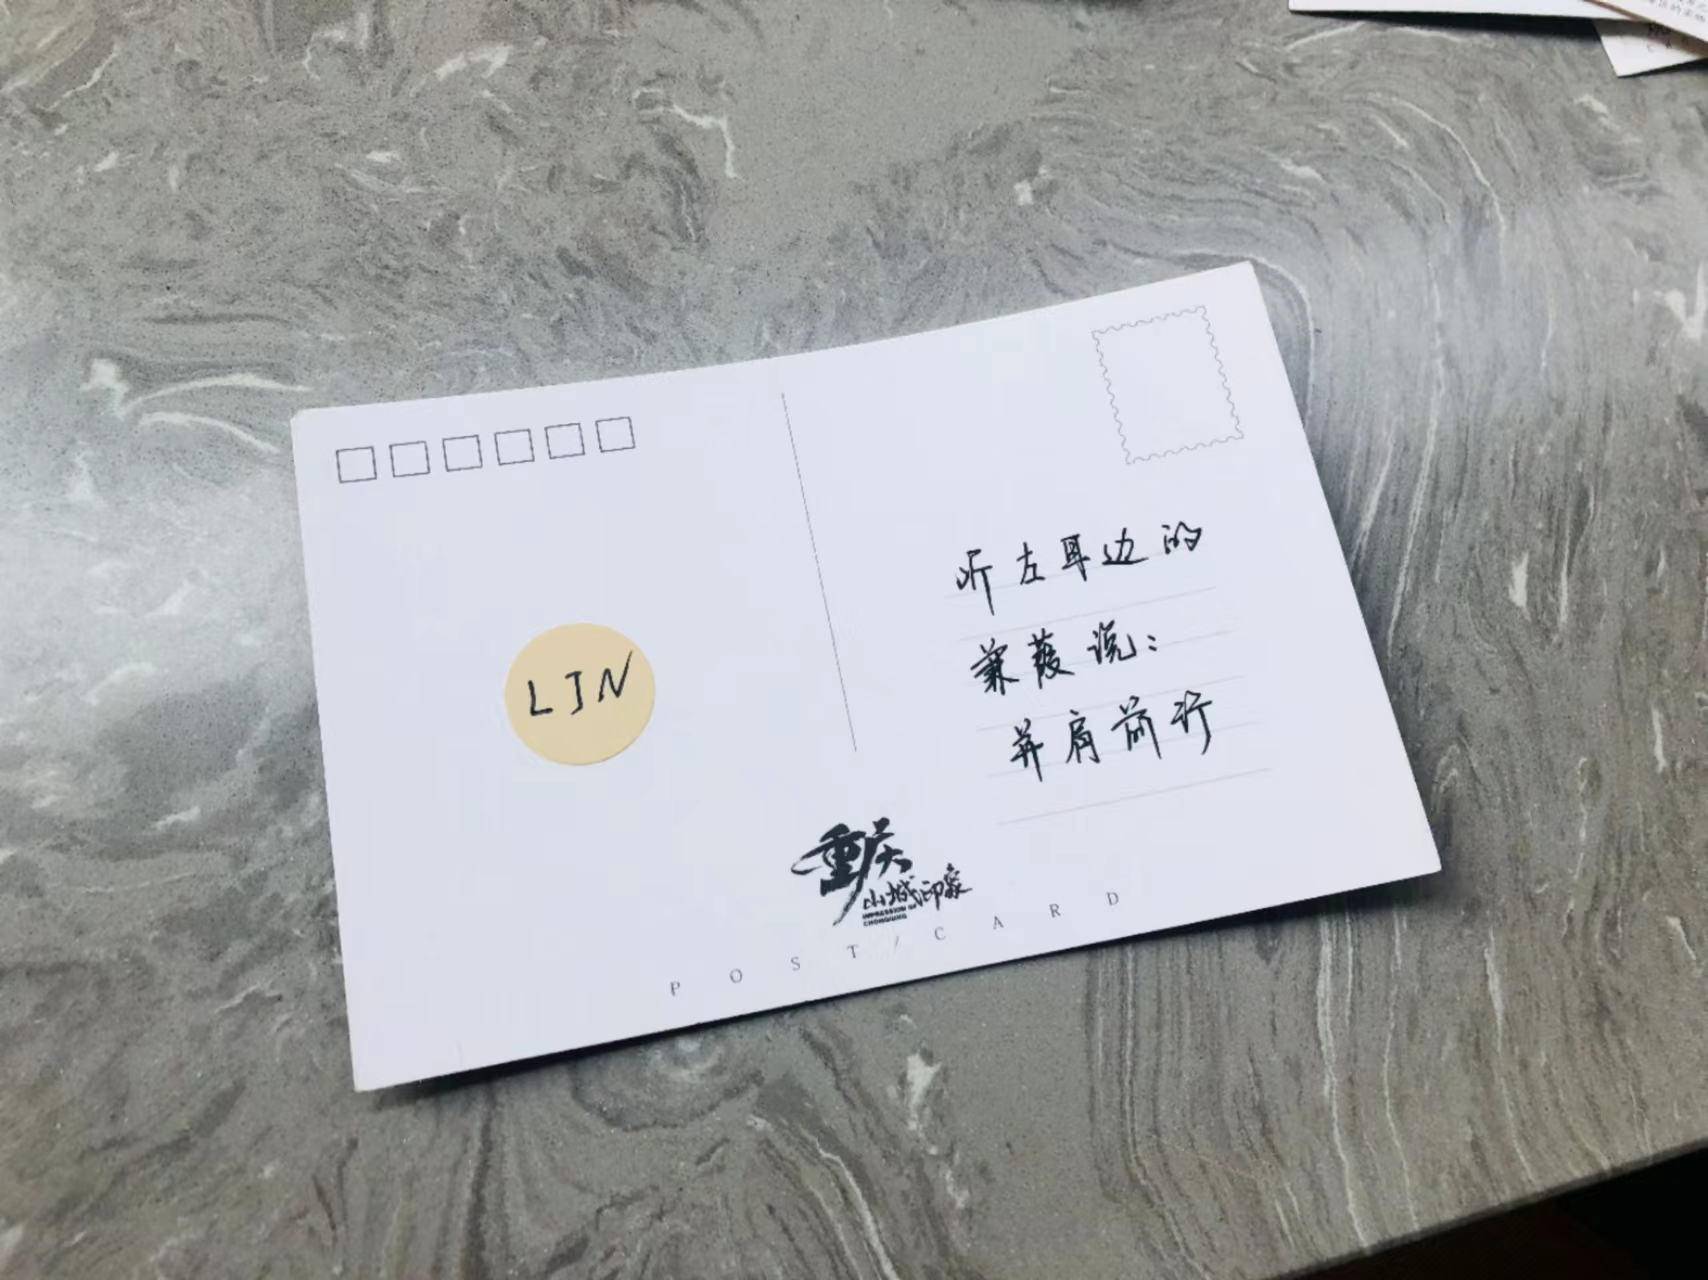 LIN
听左耳边的
蒹葭说：
并肩前行
重庆
山城印象
IMPRESSION OF
CHONGQING
POST/CARD